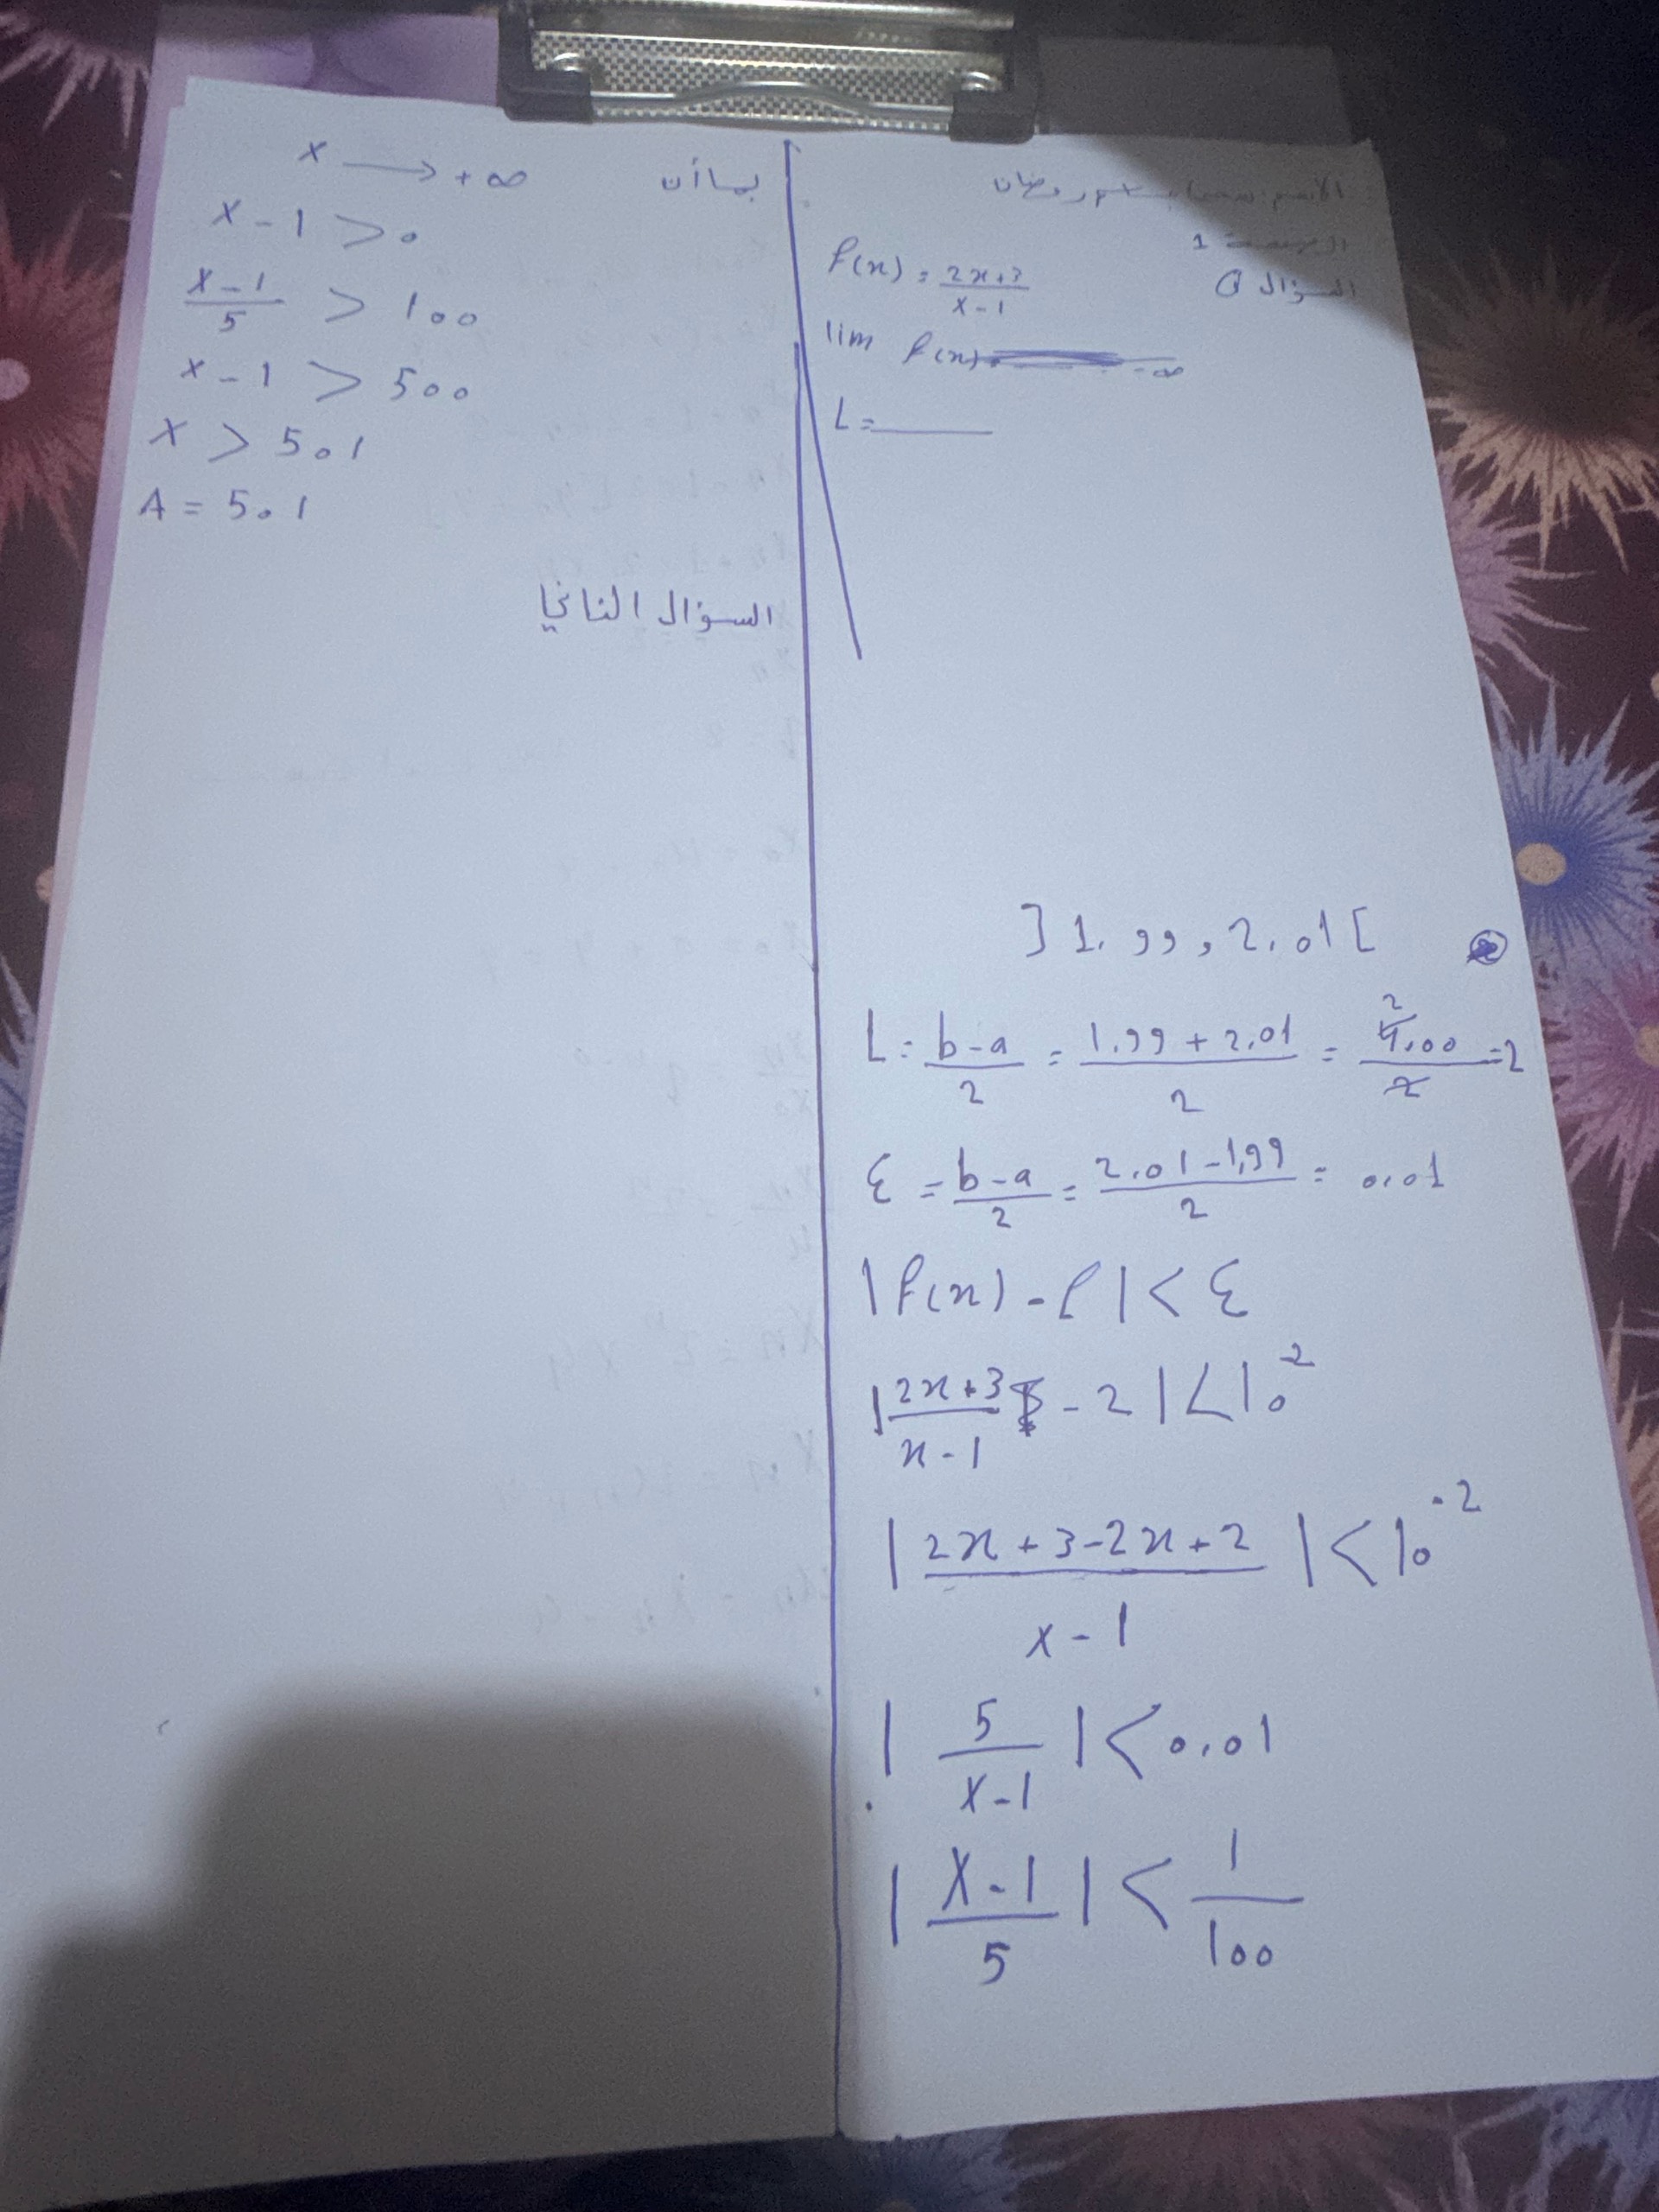 السؤال 1
f(x) = 2x+3 / x-1
lim f(x) -∞
L =
]1.99 , 2.01[
L = b-a / 2 = 1.99 + 2.01 / 2 = 4.00 / 2 = 2
ε = b-a / 2 = 2.01 - 1.99 / 2 = 0.01
|f(x) - l| < ε
|2x+3 / x-1 - 2| < 10^2
|2x+3-2x+2 / x-1| < 10^-2
|5 / x-1| < 0.01
|x-1 / 5| < 1 / 100
بما أن x → +∞
x - 1 > 0
x-1 / 5 > 100
x - 1 > 500
x > 501
A = 501
السؤال الثاني